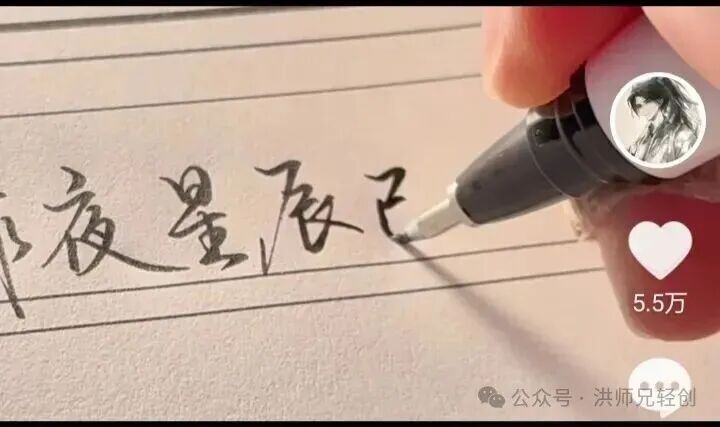 夜星辰已
5.5万
公众号·洪师兄轻创